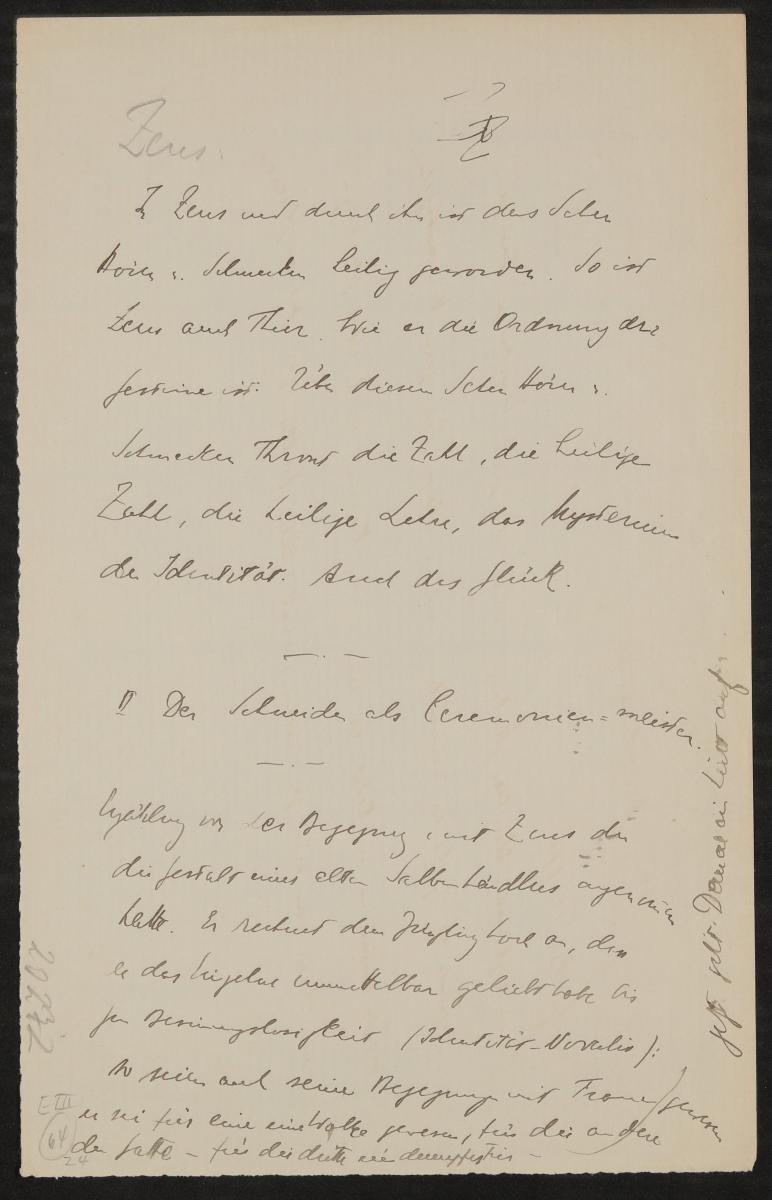 Zeus.
In Zeus und durch ihn ist das Sehen
Hören u. Schmecken heilig geworden. So ist
Zeus auch Thier. Wie er die Ordnung der
Gestirne ist. Über diesem Sehen Hören u.
Schmecken Thront die Zahl, die heilige
Zahl, die heilige Lehre, das Mysterium
der Identität. Auch das Glück.
II Der Schneider als Ceremonien=meister.
Erzählung von der Begegnung mit Zeus der
die Gestalt eines alten Salbenhändlers angenommen
hatte. Er rechnet dem Jüngling hoch an, dass
er das unmittelbar geliebt habe bis
zur Besinnungslosigkeit (Identität-Novalis):
So seien auch seine Begegnungen mit Frauen gewesen
er sei für eine eine Wolke gewesen, für die andere
der Gatte – für die dritte ein –
E III
64
24
20232